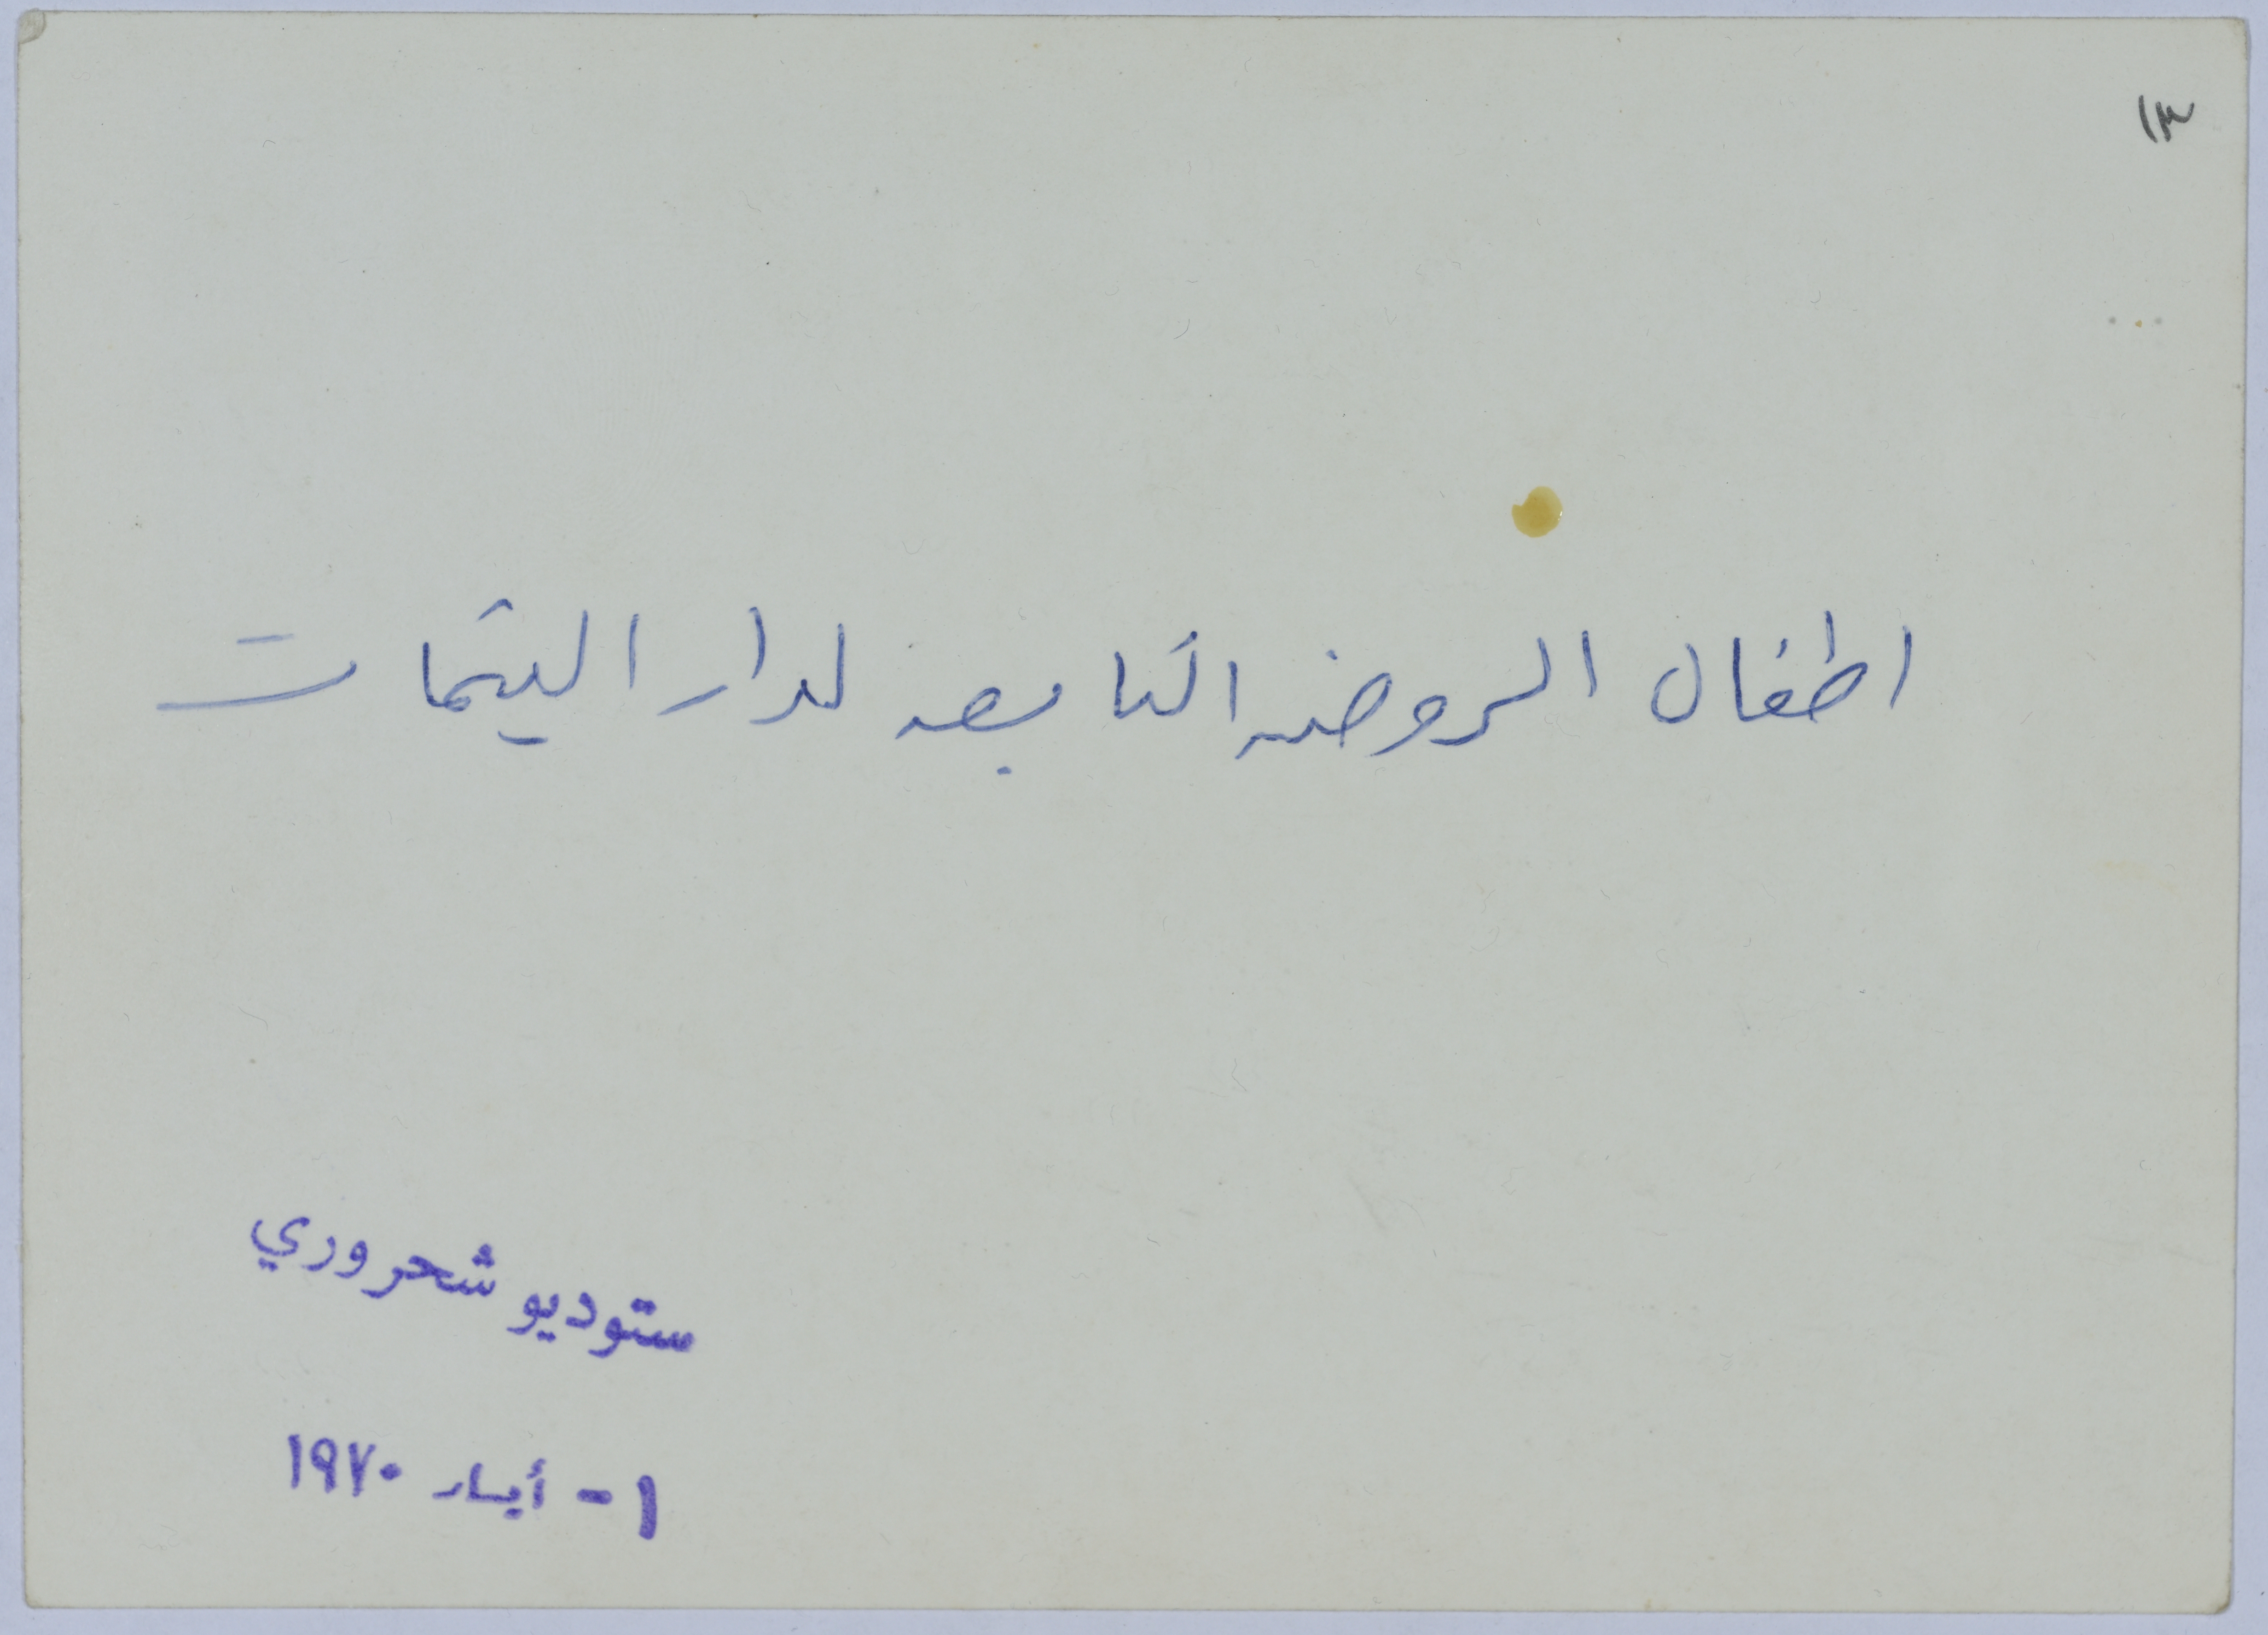 ١٣
اطفال الروضه التابعه لدار اليتيمات
ستوديو شحروري
١ - أيار ١٩٧٠